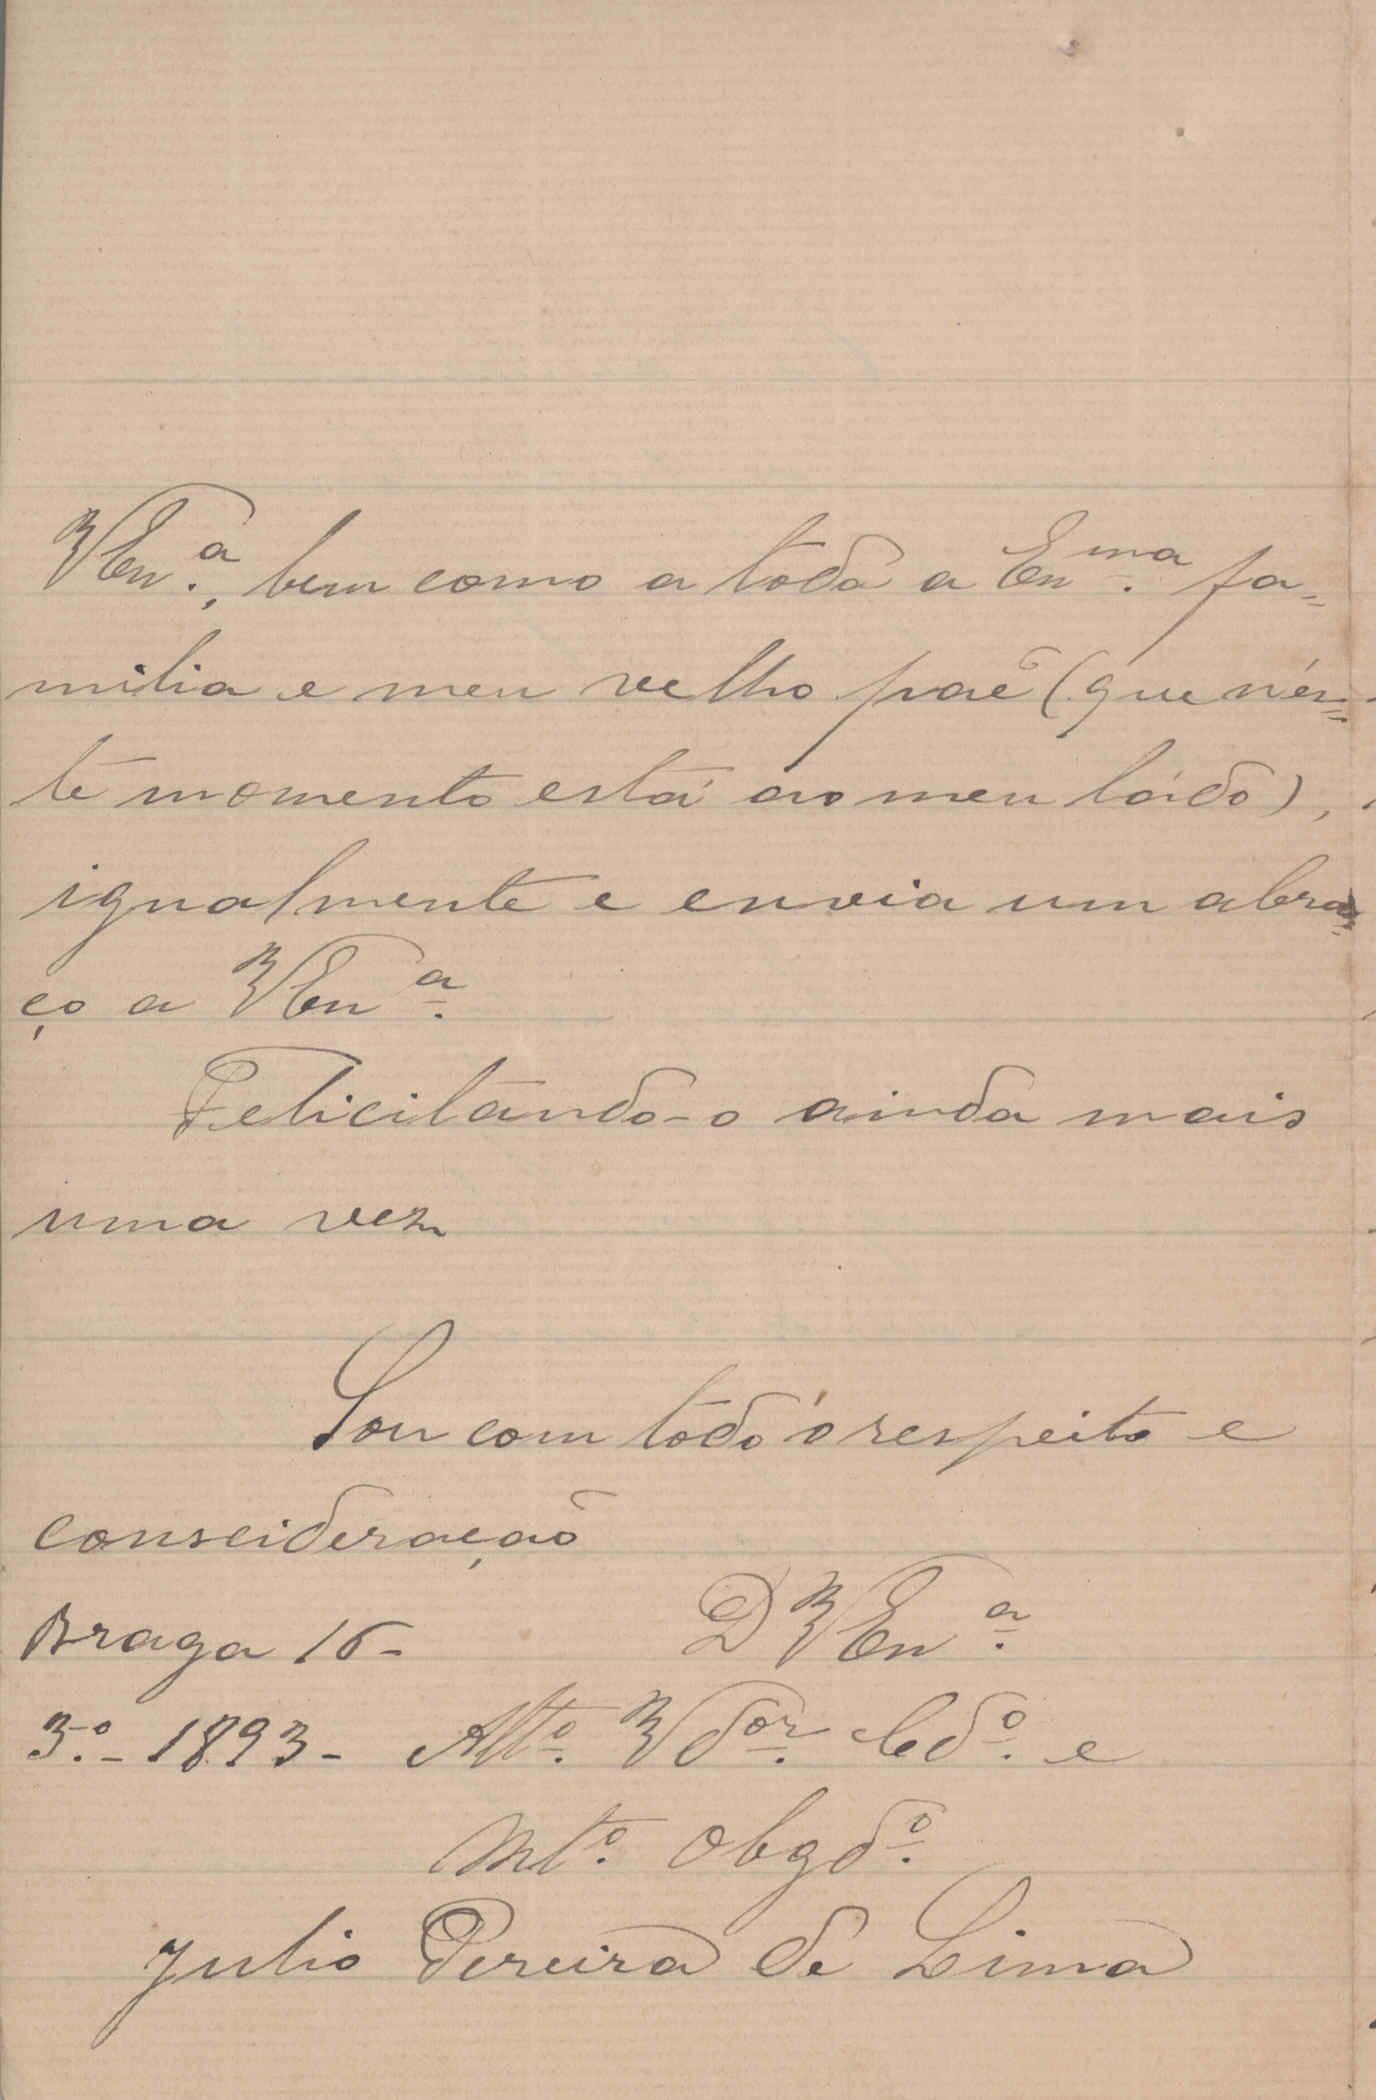 VEx.ª, bem como a toda a Ex.ma fa=
milia e meu velho paê (que nés=
te momento está ao meu ládo),
igualmente e envia um abra=
ço a VEx.ª
Felicitando-o ainda mais
uma vez
Sou com todo o respeito e
conseideração
D VEx.ª
Braga 16-
3.º- 1893- Att.º V.dor C.do e
Mt.º Obgd.º
Julio Pereira de Lima